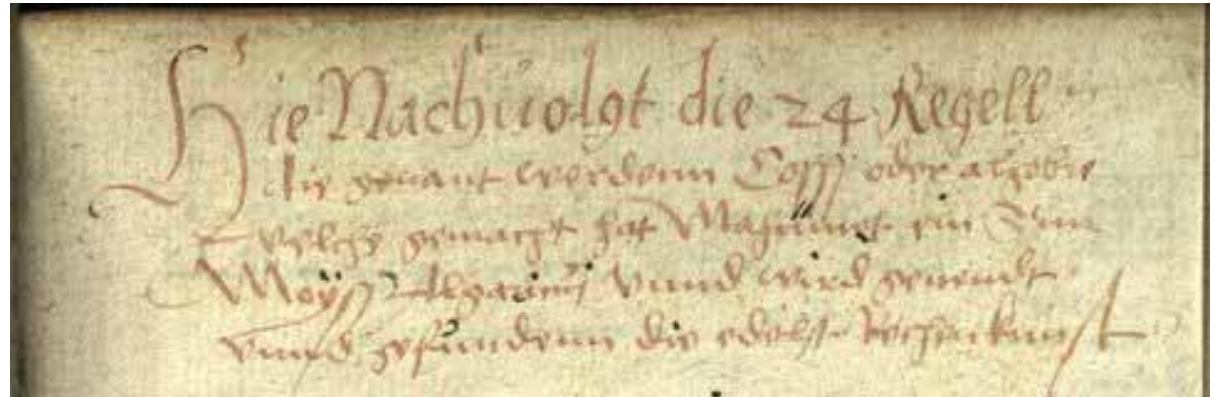 Hie Nachuolgt die 24 Regell
die genant werdenn Coss oder algebre
welche gemacht hat Machmet ein Sun
Moÿss Algaurisi vnnd wird genendt
vnnd gefundenn die edelst Rechenkunst